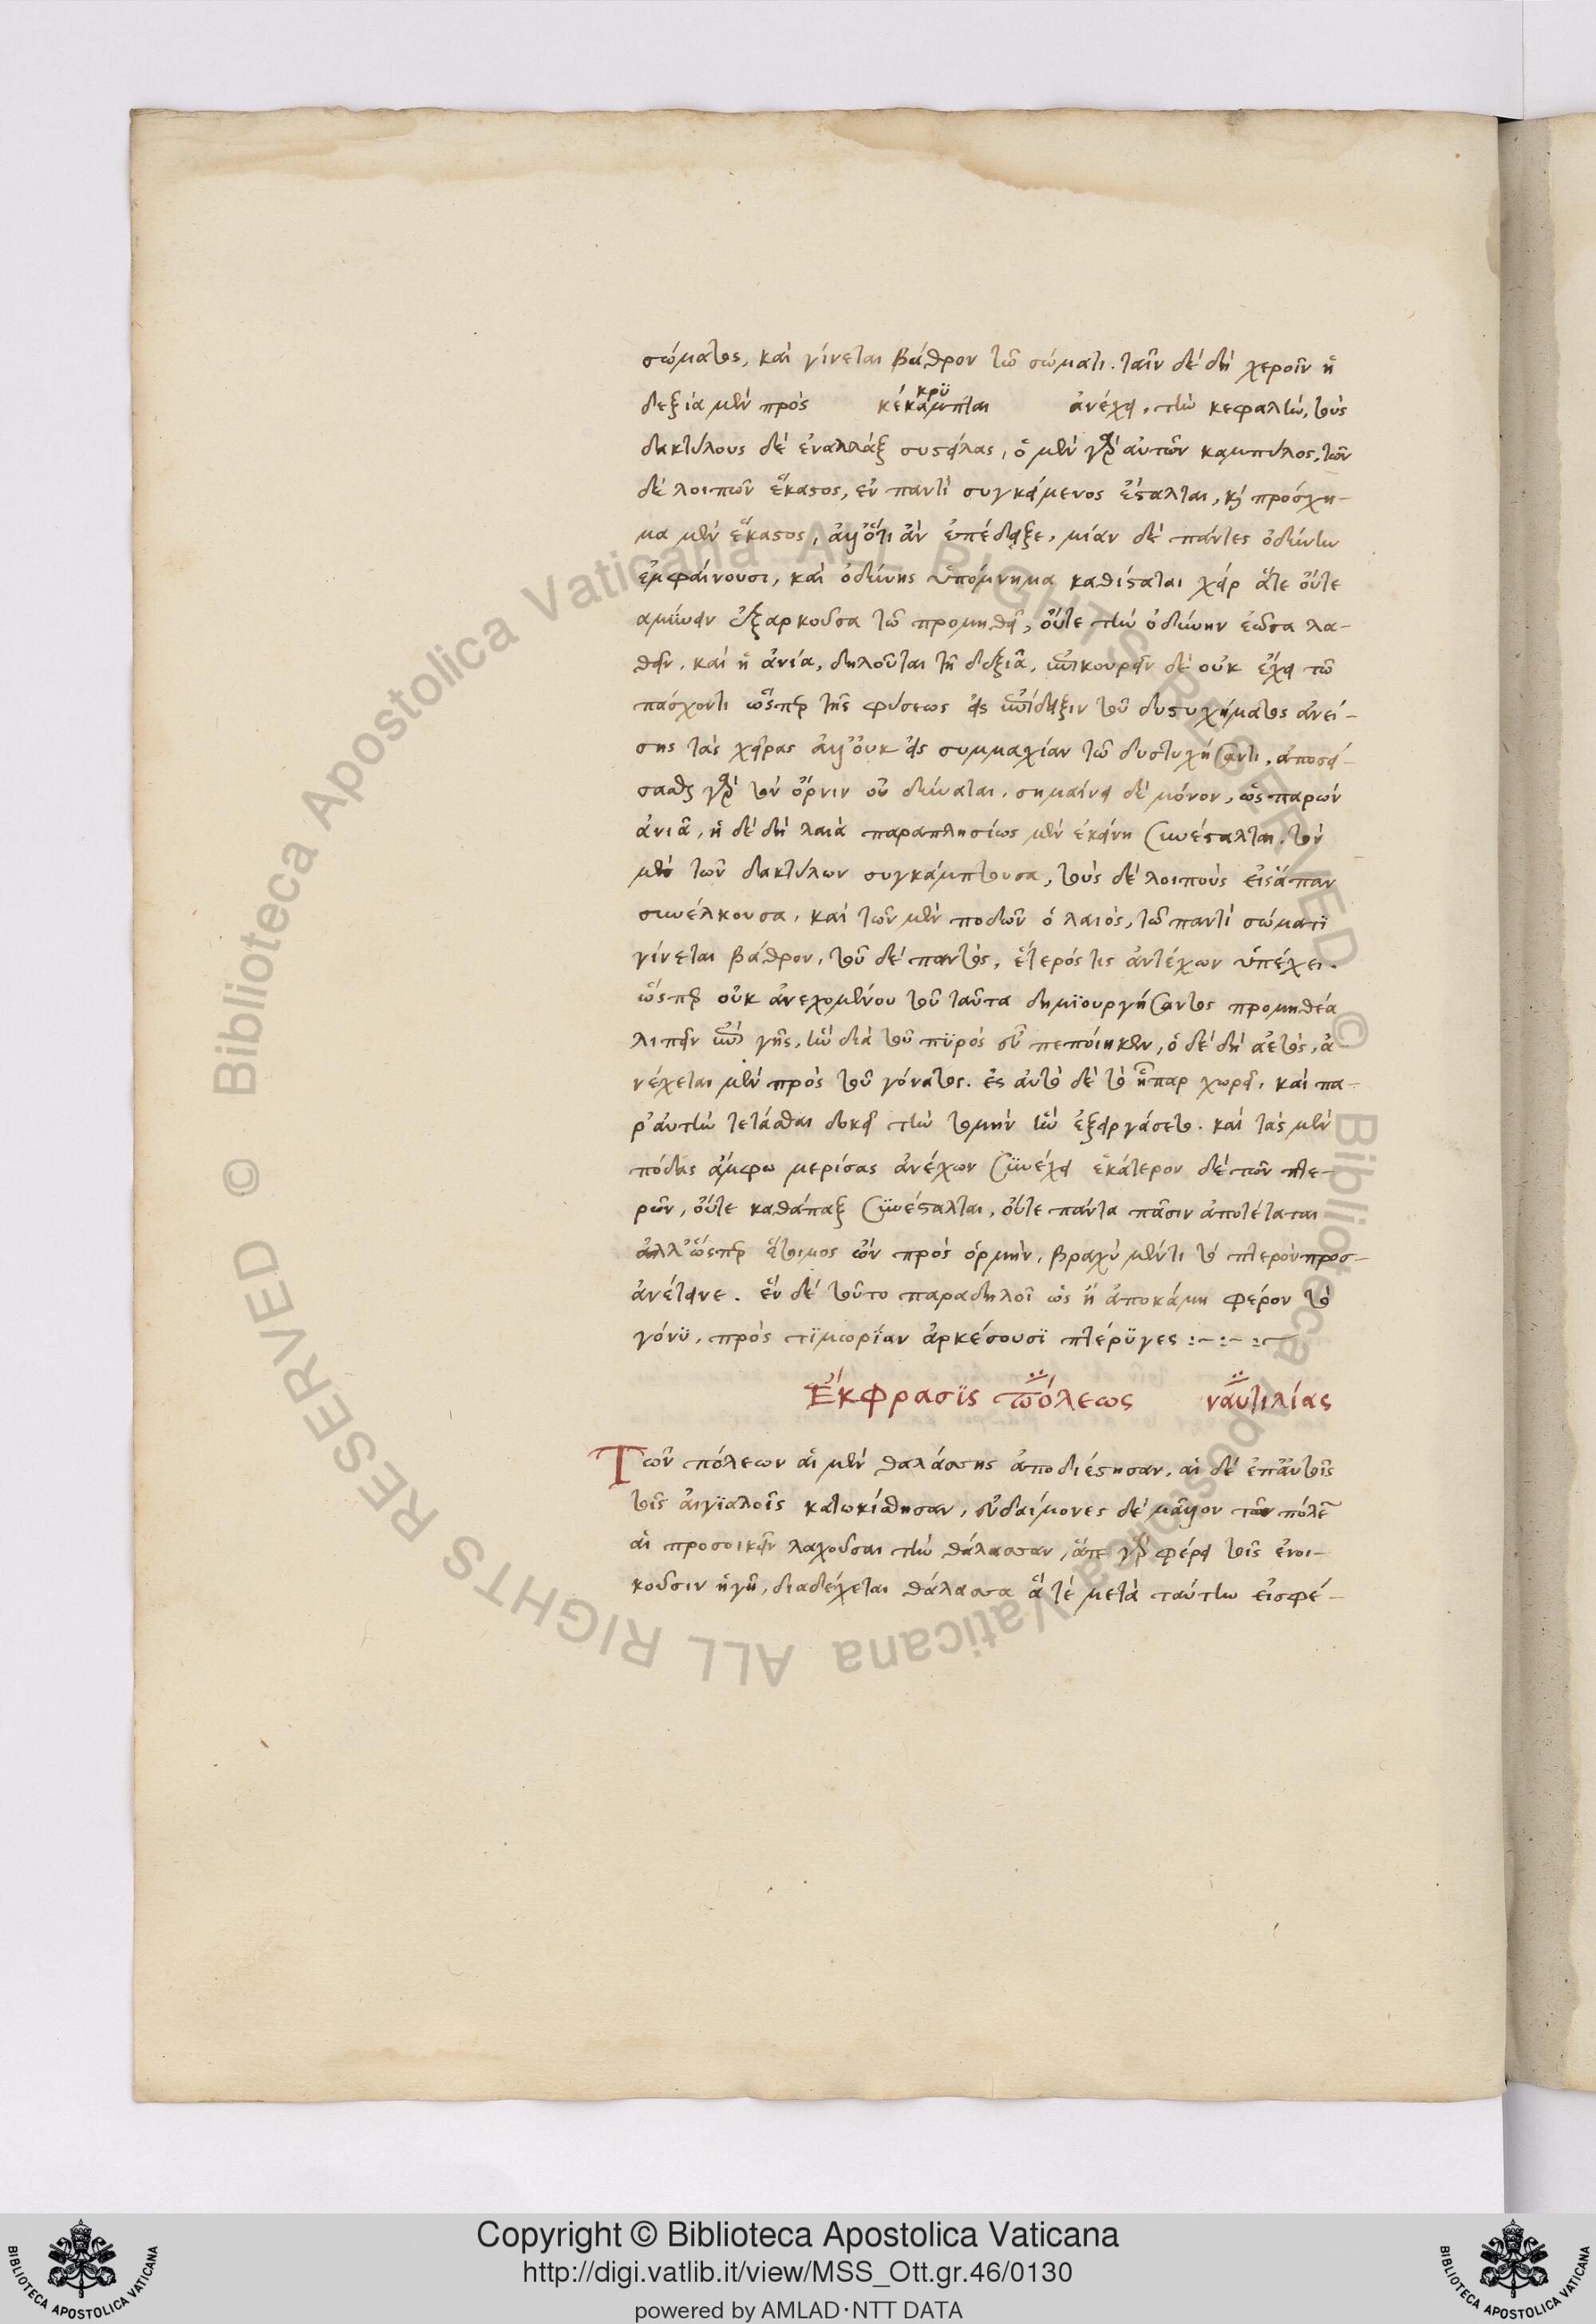 σώματος, καὶ γίνεται βάθρον τῶ σώματι. ταῖν δὲ δὴ χεροῖν ἡ
δεξιὰ μὲν πρὸς κέκαμπται κρϋ ἀνέχει, τὴν κεφαλὴν, τοὺς
δακτύλους δὲ ἐναλλὰξ συστείλας, ὁ μὲν γὰρ αὐτῶν καμπύλος, τῶν
δὲ λοιπῶν ἕκαστος, ἐν παντὶ συγκείμενος ἔσταλται, καὶ πρόσχη-
μα μὲν ἕκαστος, ἀλλ' ὅτι ἂν ὑπέδειξε, μίαν δὲ πάντες ὀδύνην
ἐμφαίνουσι, καὶ ὀδύνης ὑπόμνημα καθίσταται χεὶρ ἅτε οὔτε
αμύνειν ἐξαρκοῦσα τῶ προμηθεῖ, οὔτε τὴν ὀδύνην ἐῶσα λα-
θεῖν. καὶ ἡ ἀνία, δηλοῦται τῆ δεξιᾶ, ἐπικουρεῖν δὲ οὐκ ἔχει τῶ
πάσχοντι ὥσπερ τῆς φύσεως εἰς ἐπίδειξιν τοῦ δυστυχήματος ἀνεί-
σης τὰς χεῖρας ἀλλ' οὐκ εἰς συμμαχίαν τῶ δυστυχήσαντι, ἀποσεί-
σασθαι γὰρ τὸν ὄρνιν οὐ δύναται. σημαίνει δὲ μόνον, ὡς παρὼν
ἀνιᾶ, ἡ δὲ δὴ λαιὰ παραπλησίως μὲν ἐκείνη συνέσταλται. τὸν
μὲν τῶν δακτύλων συγκάμπτουσα, τοὺς δὲ λοιποὺς εἰσάπαν
συνέλκουσα. καὶ τῶν μὲν ποδῶν ὁ λαιὸς, τῶ παντὶ σώματϊ
γίνεται βάθρον, τοῦ δὲ παντὸς, ἕτερός τις ἀντέχων ὑπέχει.
ὥσπερ οὐκ ἀνεχομένου τοῦ ταῦτα δημϊουργήσαντος προμηθέα
λιπεῖν ἐπὶ γῆς, ἣν διὰ τοῦ πϋρὸς εὖ πεποίηκεν, ὁ δὲ δὴ ἀετὸς, ἀ-
νέχεται μὲν πρὸς τοῦ γόνατος. ἐς αὐτὸ δὲ τὸ ἧπαρ χωρεῖ. καὶ πα-
ρ' αὐτὴν τετάσθαι δοκεῖ τὴν τομὴν ἣν ἐξειργάσετο. καὶ τὰς μὲν
πόδας ἄμφω μερίσας ἀνέχων συνέχει ἑκάτερον δὲ τῶν πτε-
ρῶν, οὔτε καθάπαξ συνέσταλται, οὔτε πάντα πᾶσιν ἀποτέταται
ἀλλ' ὥσπερ ἕτοιμος ὢν πρὸς ὁρμὴν, βραχὺ μέντι τὸ πτερὸν προσ-
ἀνέτεινε. ἓν δὲ τοῦτο παραδηλοῖ ὡς ἢ ἀποκάμη φέρον τὸ
γόνϋ, πρὸς τϊμωρῒαν ἀρκέσουσϊ πτέρϋγες :~:~ :~
Ἔκφρασϊς πόλεως ναυτιλίας
Τῶν πόλεων αἱ μὲν θαλάσσης ἀποδιέστησαν, αἱ δὲ ἐπ' ἀυτοῖς
τοῖς ἀιγϊαλοῖς κατωκίσθησαν, εὐδαίμονες δὲ μᾶλλον τῶν πόλε
αἱ προσοικεῖν λαχοῦσαι τὴν θάλασσαν, ἅπε γὰρ φέρει τοῖς ἐνοι-
κοῦσιν ἡ γῆ, διαδέχεται θάλασσα ἅ τὲ μετὰ ταύτην εἰσφέ-
Copyright © Biblioteca Apostolica Vaticana
http://digi.vatlib.it/view/MSS_Ott.gr.46/0130
powered by AMLAD·NTT DATA